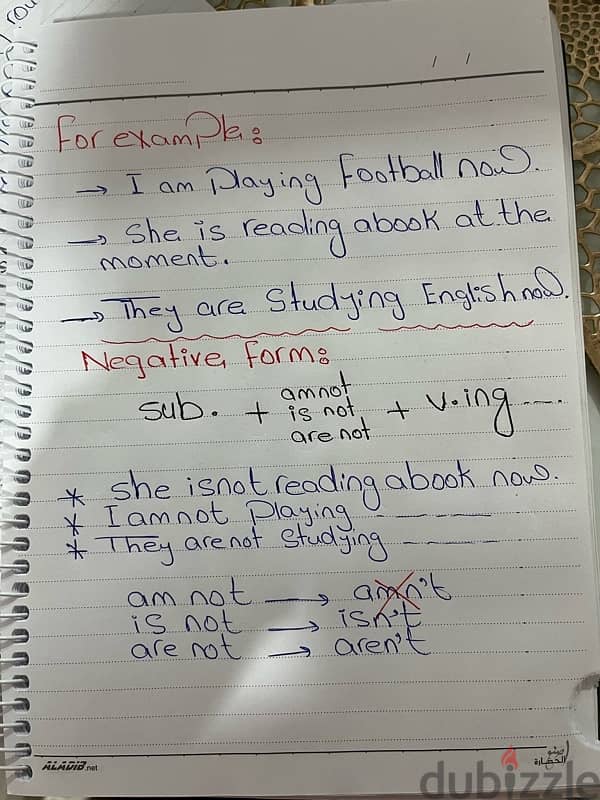 / /
For example:
→ I am playing Football now.
→ She is reading abook at the
moment.
→ They are Studying English now.
Negative Form:
sub. + am not is not are not + v.ing ....
* she is not reading abook now.
* I am not Playing ----
* They are not Studying ----
am not → amn't
is not → isn't
are not → aren't
ALADIB.net
الحضارة
dubizzle